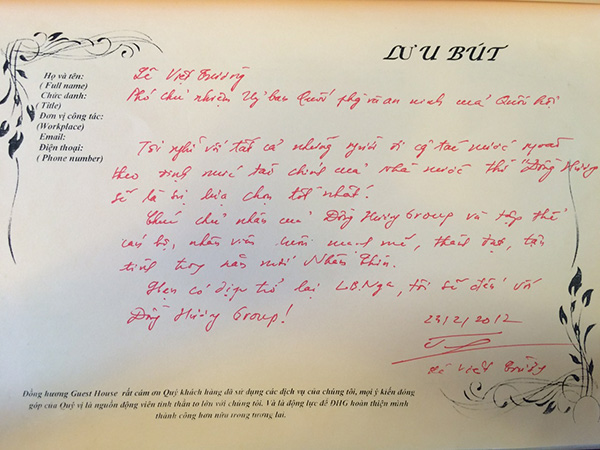 LƯU BÚT
Họ và tên:
( Full name)
Lê Việt Trường
Chức danh:
( Title)
Phó chủ nhiệm Uỷ ban Quốc phg và an ninh của Quốc hội
Đơn vị công tác:
(Workplace)
Email:
Điện thoại:
( Phone number)
Tôi nghĩ với tất cả những người đi cg tác nước ngoài
theo định mức tài chính của nhà nước thì "Đồng Hương
sẽ là sự lựa chọn tốt nhất!
Chúc chủ nhân của Đồng Hương Group và tập thể
cán bộ, nhân viên luôn mạnh mẽ, thành đạt, tận
tình trong năm mới Nhâm Thìn.
Hẹn có dịp trở lại LB.Nga, tôi sẽ đến với
Đồng Hương Group!
23/2/2012
Lê Việt Trường
Đồng hương Guest House rất cảm ơn Quý khách hàng đã sử dụng các dịch vụ của chúng tôi, mọi ý kiến đóng
góp của Quý vị là nguồn động viên tinh thần to lớn với chúng tôi. Và là động lực để ĐHG hoàn thiện mình
thành công hơn nữa trong tương lai.